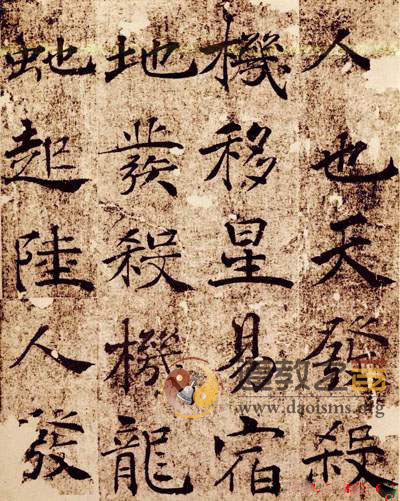 人也天發殺
機移星易宿
地發殺機龍
虵起陸人發
道教之音
www.daoisms.org